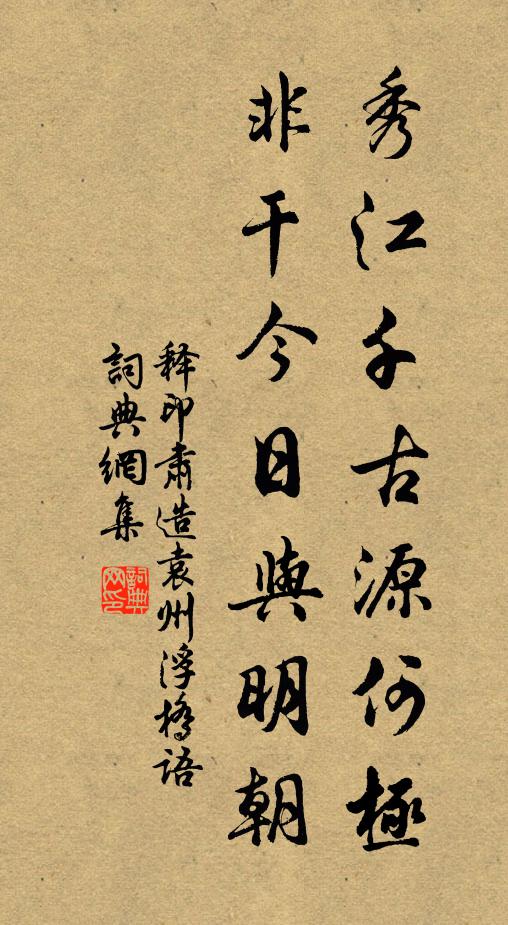 秀江千古源何極
非干今日與明朝
释印肅造袁州浮橋语
詞典網集
詞典网印